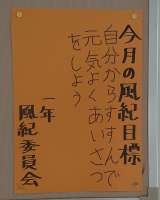 今月の風紀目標
自分からすすんで
元気よくあいさつ
をしよう
一年
風紀委員会